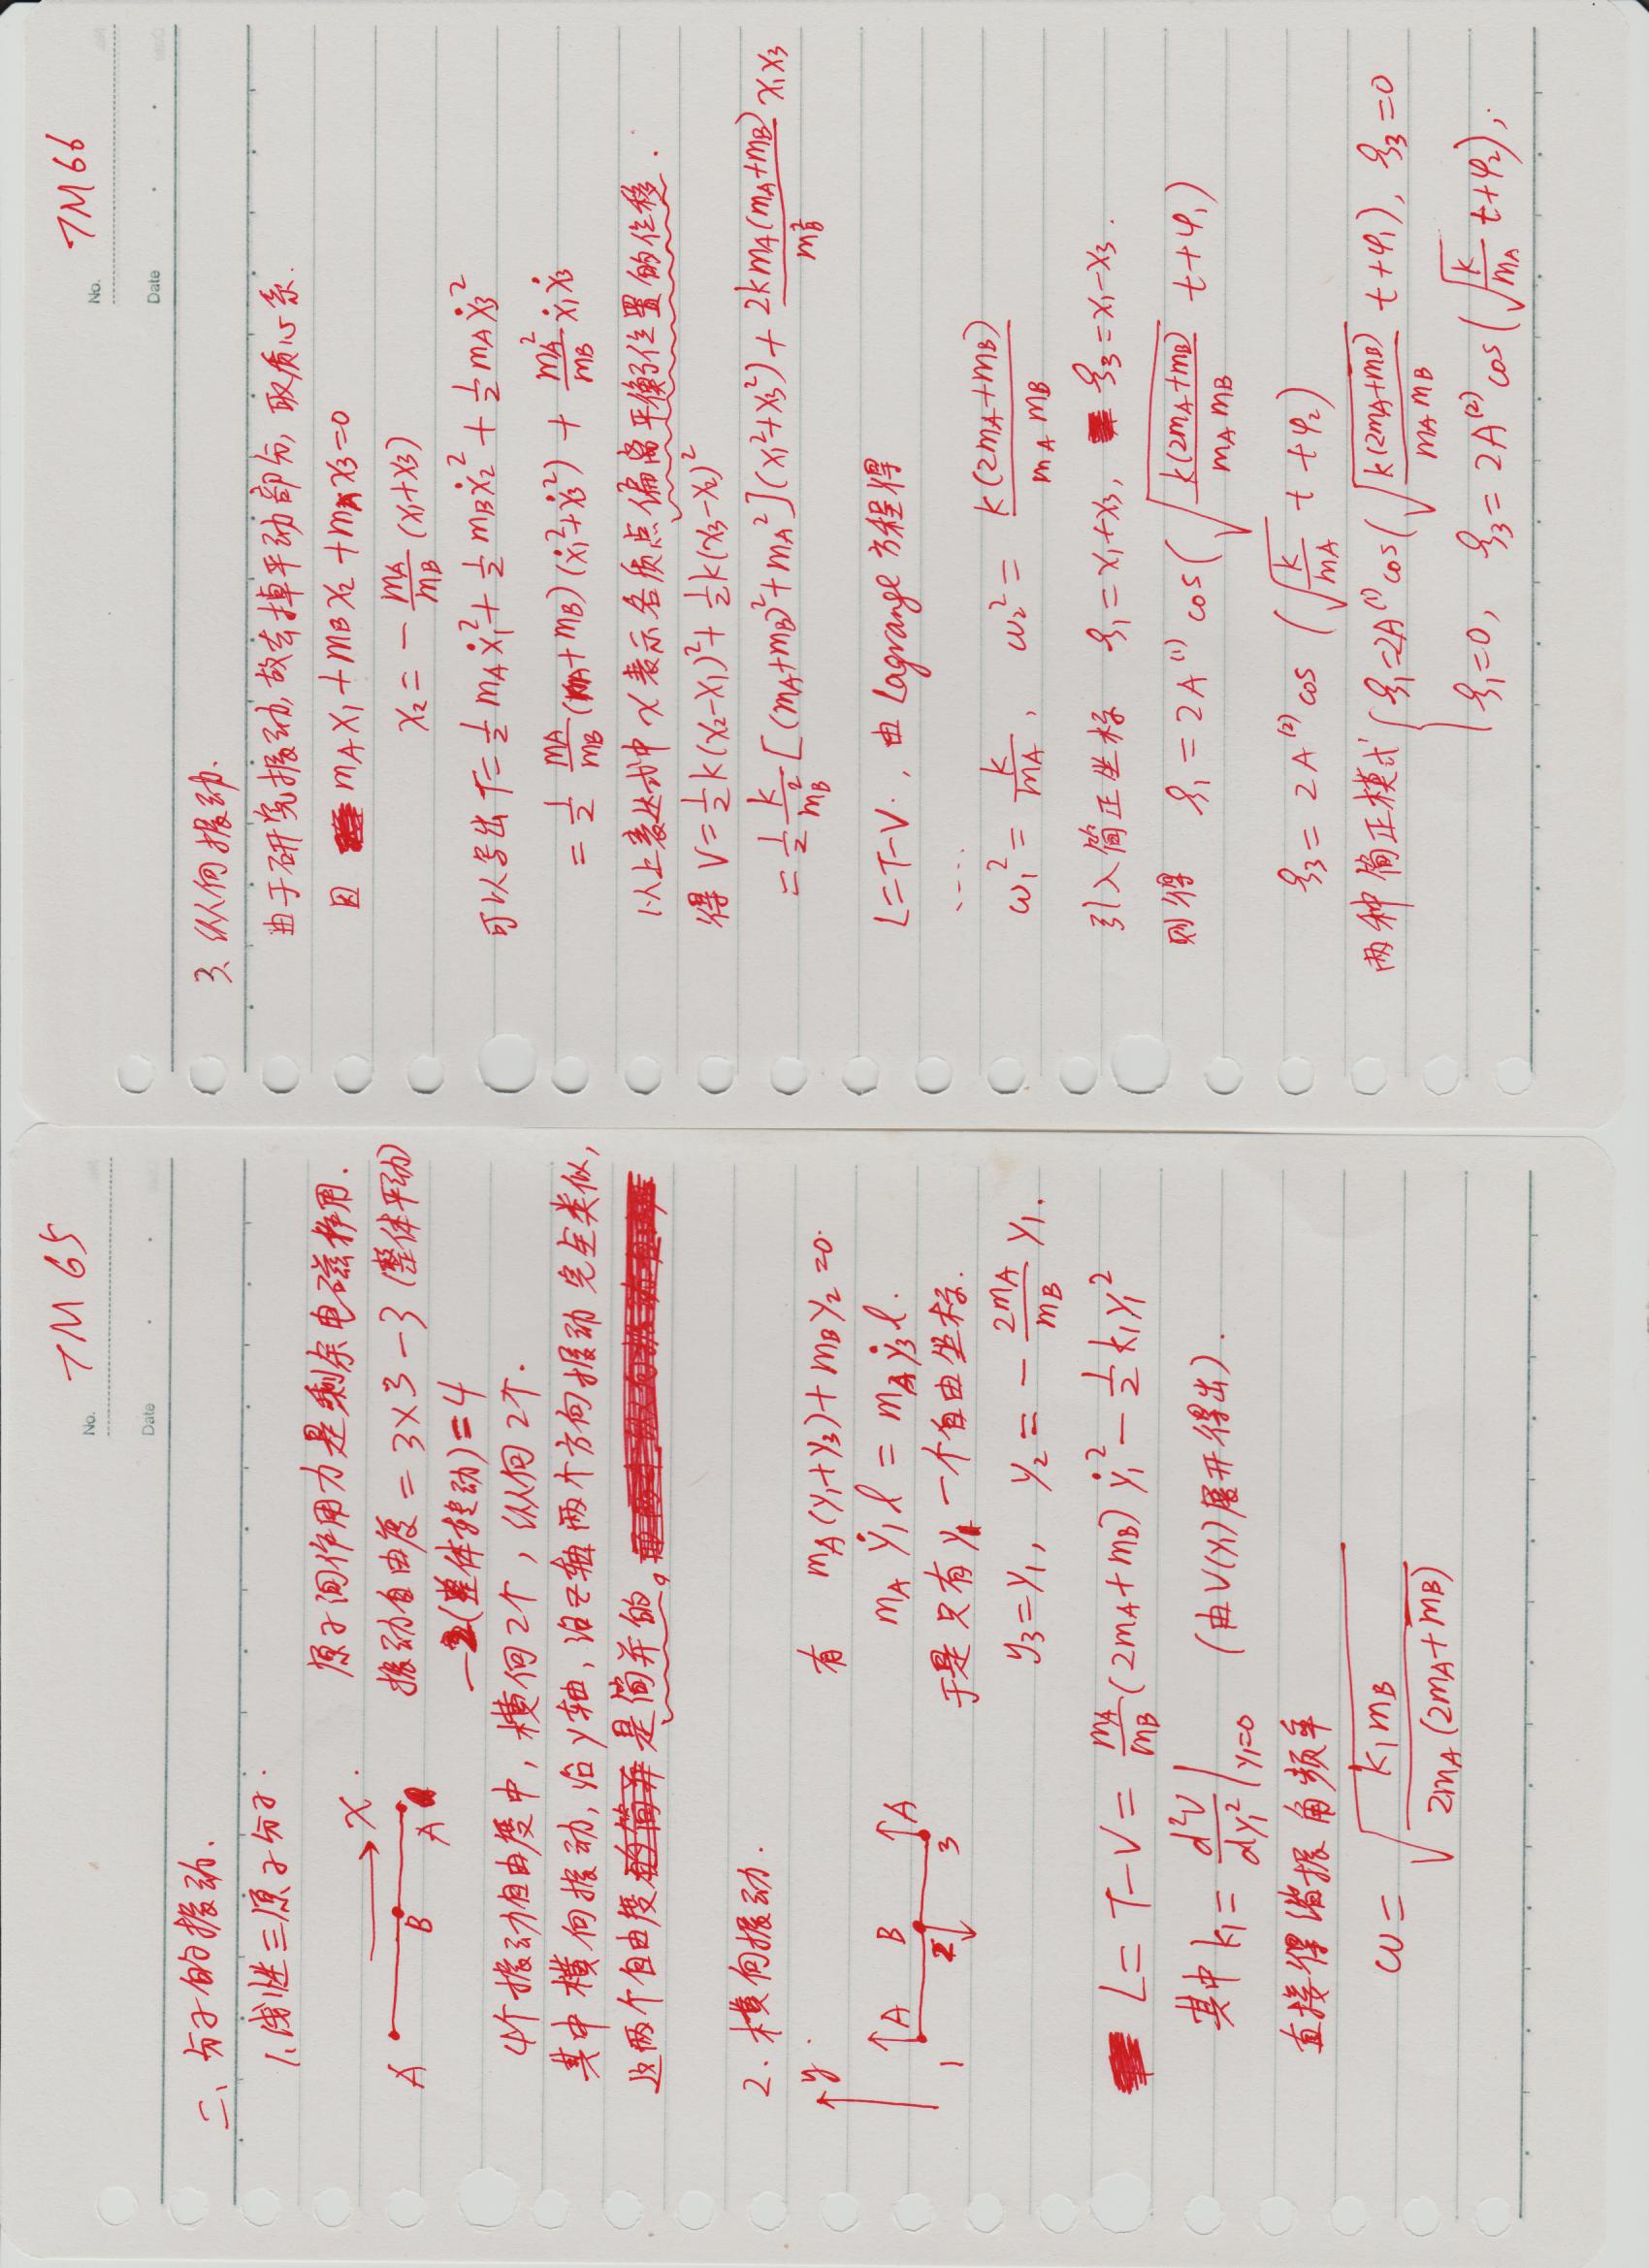 No. TM 65
Date
二、分子的振动.
1. 线性三原子分子.
原子间作用力是剩余电磁作用.
x.
A B A
振动自由度 = 3×3 - 3 (整体平动)
-2(整体转动) = 4
4个振动自由度中, 横向2个, 纵向2个.
其中横向振动, 沿y轴, 沿z轴两个方向振动完全类似,
这两个自由度是简并的。
2. 横向振动.
y.
A B A
1 2 3
有 m_A(y_1+y_3)+m_B y_2=0.
m_A ẏ_1 l = m_A ẏ_3 l.
于是只有y_1一个自由坐标.
y_3=y_1, y_2 = - \frac{2m_A}{m_B} y_1.
L = T-V = \frac{m_A}{m_B}(2m_A+m_B) ẏ_1^2 - \frac{1}{2} k_1 y_1^2
其中 k_1 = \frac{d^2V}{dy_1^2}|_{y_1=0} (由V(y_1)展开得出).
直接得谐振角频率
ω = \sqrt{\frac{k_1 m_B}{2m_A(2m_A+m_B)}}
No. TM 66
Date
3、纵向振动.
由于研究振动, 故去掉平动部分, 取质心系.
因 m_A x_1+m_B x_2+m_A x_3=0
x_2 = - \frac{m_A}{m_B} (x_1+x_3)
可以写出 T = \frac{1}{2} m_A ẋ_1^2 + \frac{1}{2} m_B ẋ_2^2 + \frac{1}{2} m_A ẋ_3^2
= \frac{1}{2} \frac{m_A}{m_B} (m_A+m_B)(ẋ_1^2+ẋ_3^2) + \frac{m_A^2}{m_B} ẋ_1 ẋ_3
以上表达式中 x 表示各质点偏离平衡位置的位移.
得 V = \frac{1}{2}k(x_2-x_1)^2 + \frac{1}{2}k(x_3-x_2)^2
= \frac{1}{2} \frac{k}{m_B^2} [(m_A+m_B)^2+m_A^2](x_1^2+x_3^2) + \frac{2km_A(m_A+m_B)}{m_B^2} x_1 x_3
L=T-V. , 由 Lagrange 方程得
....
ω_1^2 = \frac{k}{m_A}, ω_2^2 = \frac{k(2m_A+m_B)}{m_A m_B}
引入简正坐标 ξ_1=x_1+x_3, ξ_3=x_1-x_3.
则得 ξ_1 = 2A^{(1)} cos(\sqrt{\frac{k(2m_A+m_B)}{m_A m_B}} t+φ_1)
ξ_3 = 2A^{(2)} cos (\sqrt{\frac{k}{m_A}} t+φ_2)
两种简正模式 { ξ_1=2A^{(1)} cos(\sqrt{\frac{k(2m_A+m_B)}{m_A m_B}} t+φ_1), ξ_3=0
ξ_1=0, ξ_3=2A^{(2)} cos(\sqrt{\frac{k}{m_A}} t+φ_2),.